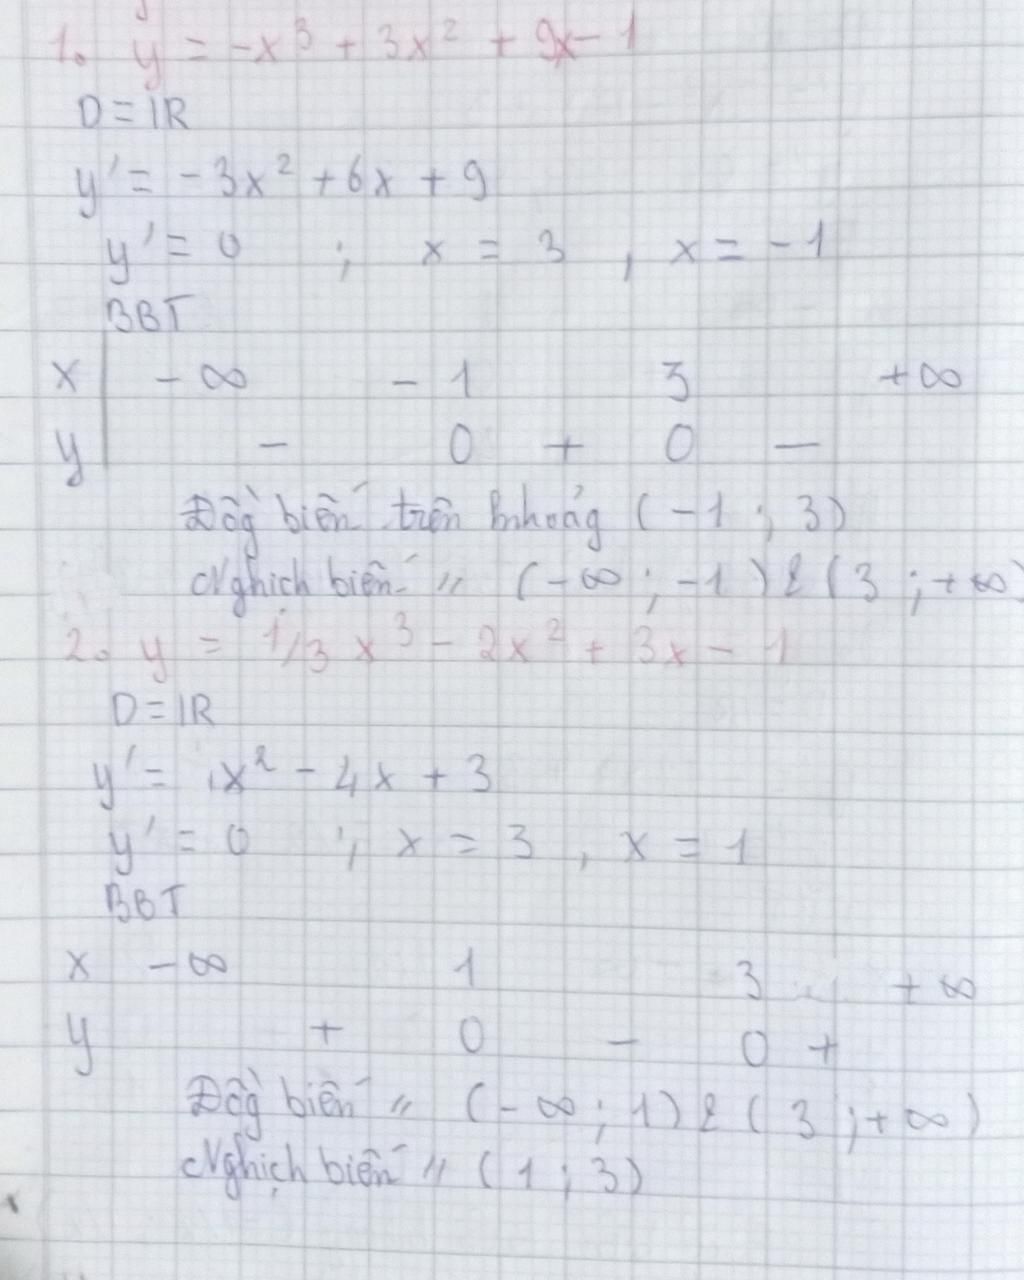 1. y = -x³ + 3x² + 9x - 1
D = IR
y' = -3x² + 6x + 9
y' = 0 ; x = 3 , x = -1
BBT
x -∞ -1 3 +∞
y - 0 + 0 -
Đồg biến trên khoảg (-1 ; 3)
Nghịch biến " (-∞ ; -1) & (3 ; +∞)
2. y = 1/3 x³ - 2x² + 3x - 1
D = IR
y' = x² - 4x + 3
y' = 0 ; x = 3 , x = 1
BBT
x -∞ 1 3 +∞
y + 0 - 0 +
Đồg biến " (-∞ ; 1) & (3 ; +∞)
Nghịch biến " (1 ; 3)